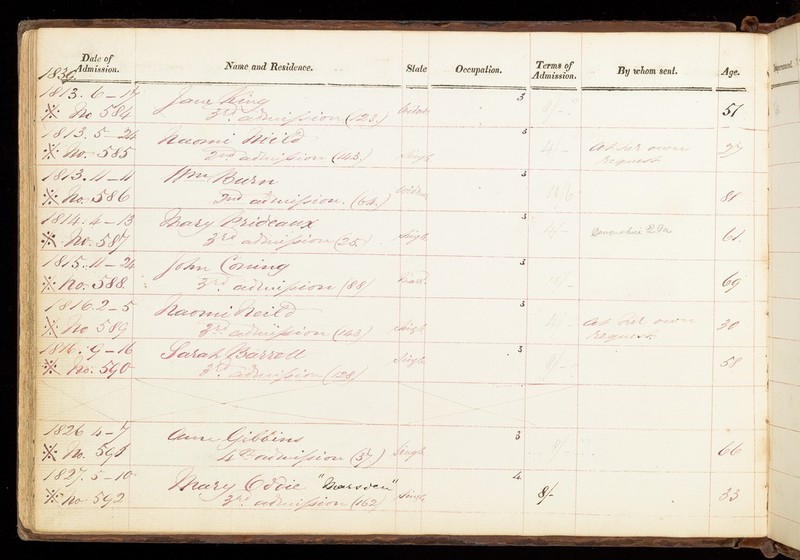 1836
Date of Admission. Name and Residence. State Occupation. Terms of Admission. By whom sent. Age.
1813. 6-17 Jane King 3
※ No 584 3rd admission (123) Widow 51
1813. 5-24 Naomi Neild 3
※ No. 585 2nd admission (143) Single 4/- At her own request 27
1813. 11-11 Wm Burn 3
※ No. 586 2nd admission. (64) 81
1814. 4-13 Mary Prideaux 3
※ No. 587 3rd admission (25) Single 4/- 61
1815. 11-24 John Coning 3
※ No. 588 3rd admission (88) 69
1816. 2-5 Naomi Neild 3
※ No 589 3rd admission (143) Single 4/- At her own request 30
1816. 9-16 Sarah Barrott 3
※ No. 590 3rd admission (128) Single 58
1826 4-7 Ann Gibbins 3
※ No. 591 4th admission (57) Single 66
1827. 5-10 Mary Oddie "Marsden" 4
※ No 592 3rd admission (162) Single 8/- 33